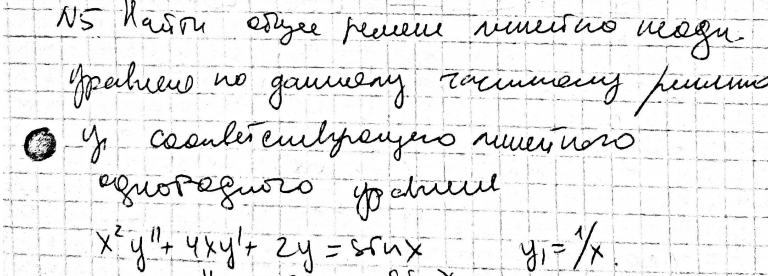 N5 Найти общее решение линейно неодн.
уравнение по данному частному решению
y₁ соответствующего линейного
однородного уравнения
x² y'' + 4xy' + 2y = sinx y₁ = 1/x.